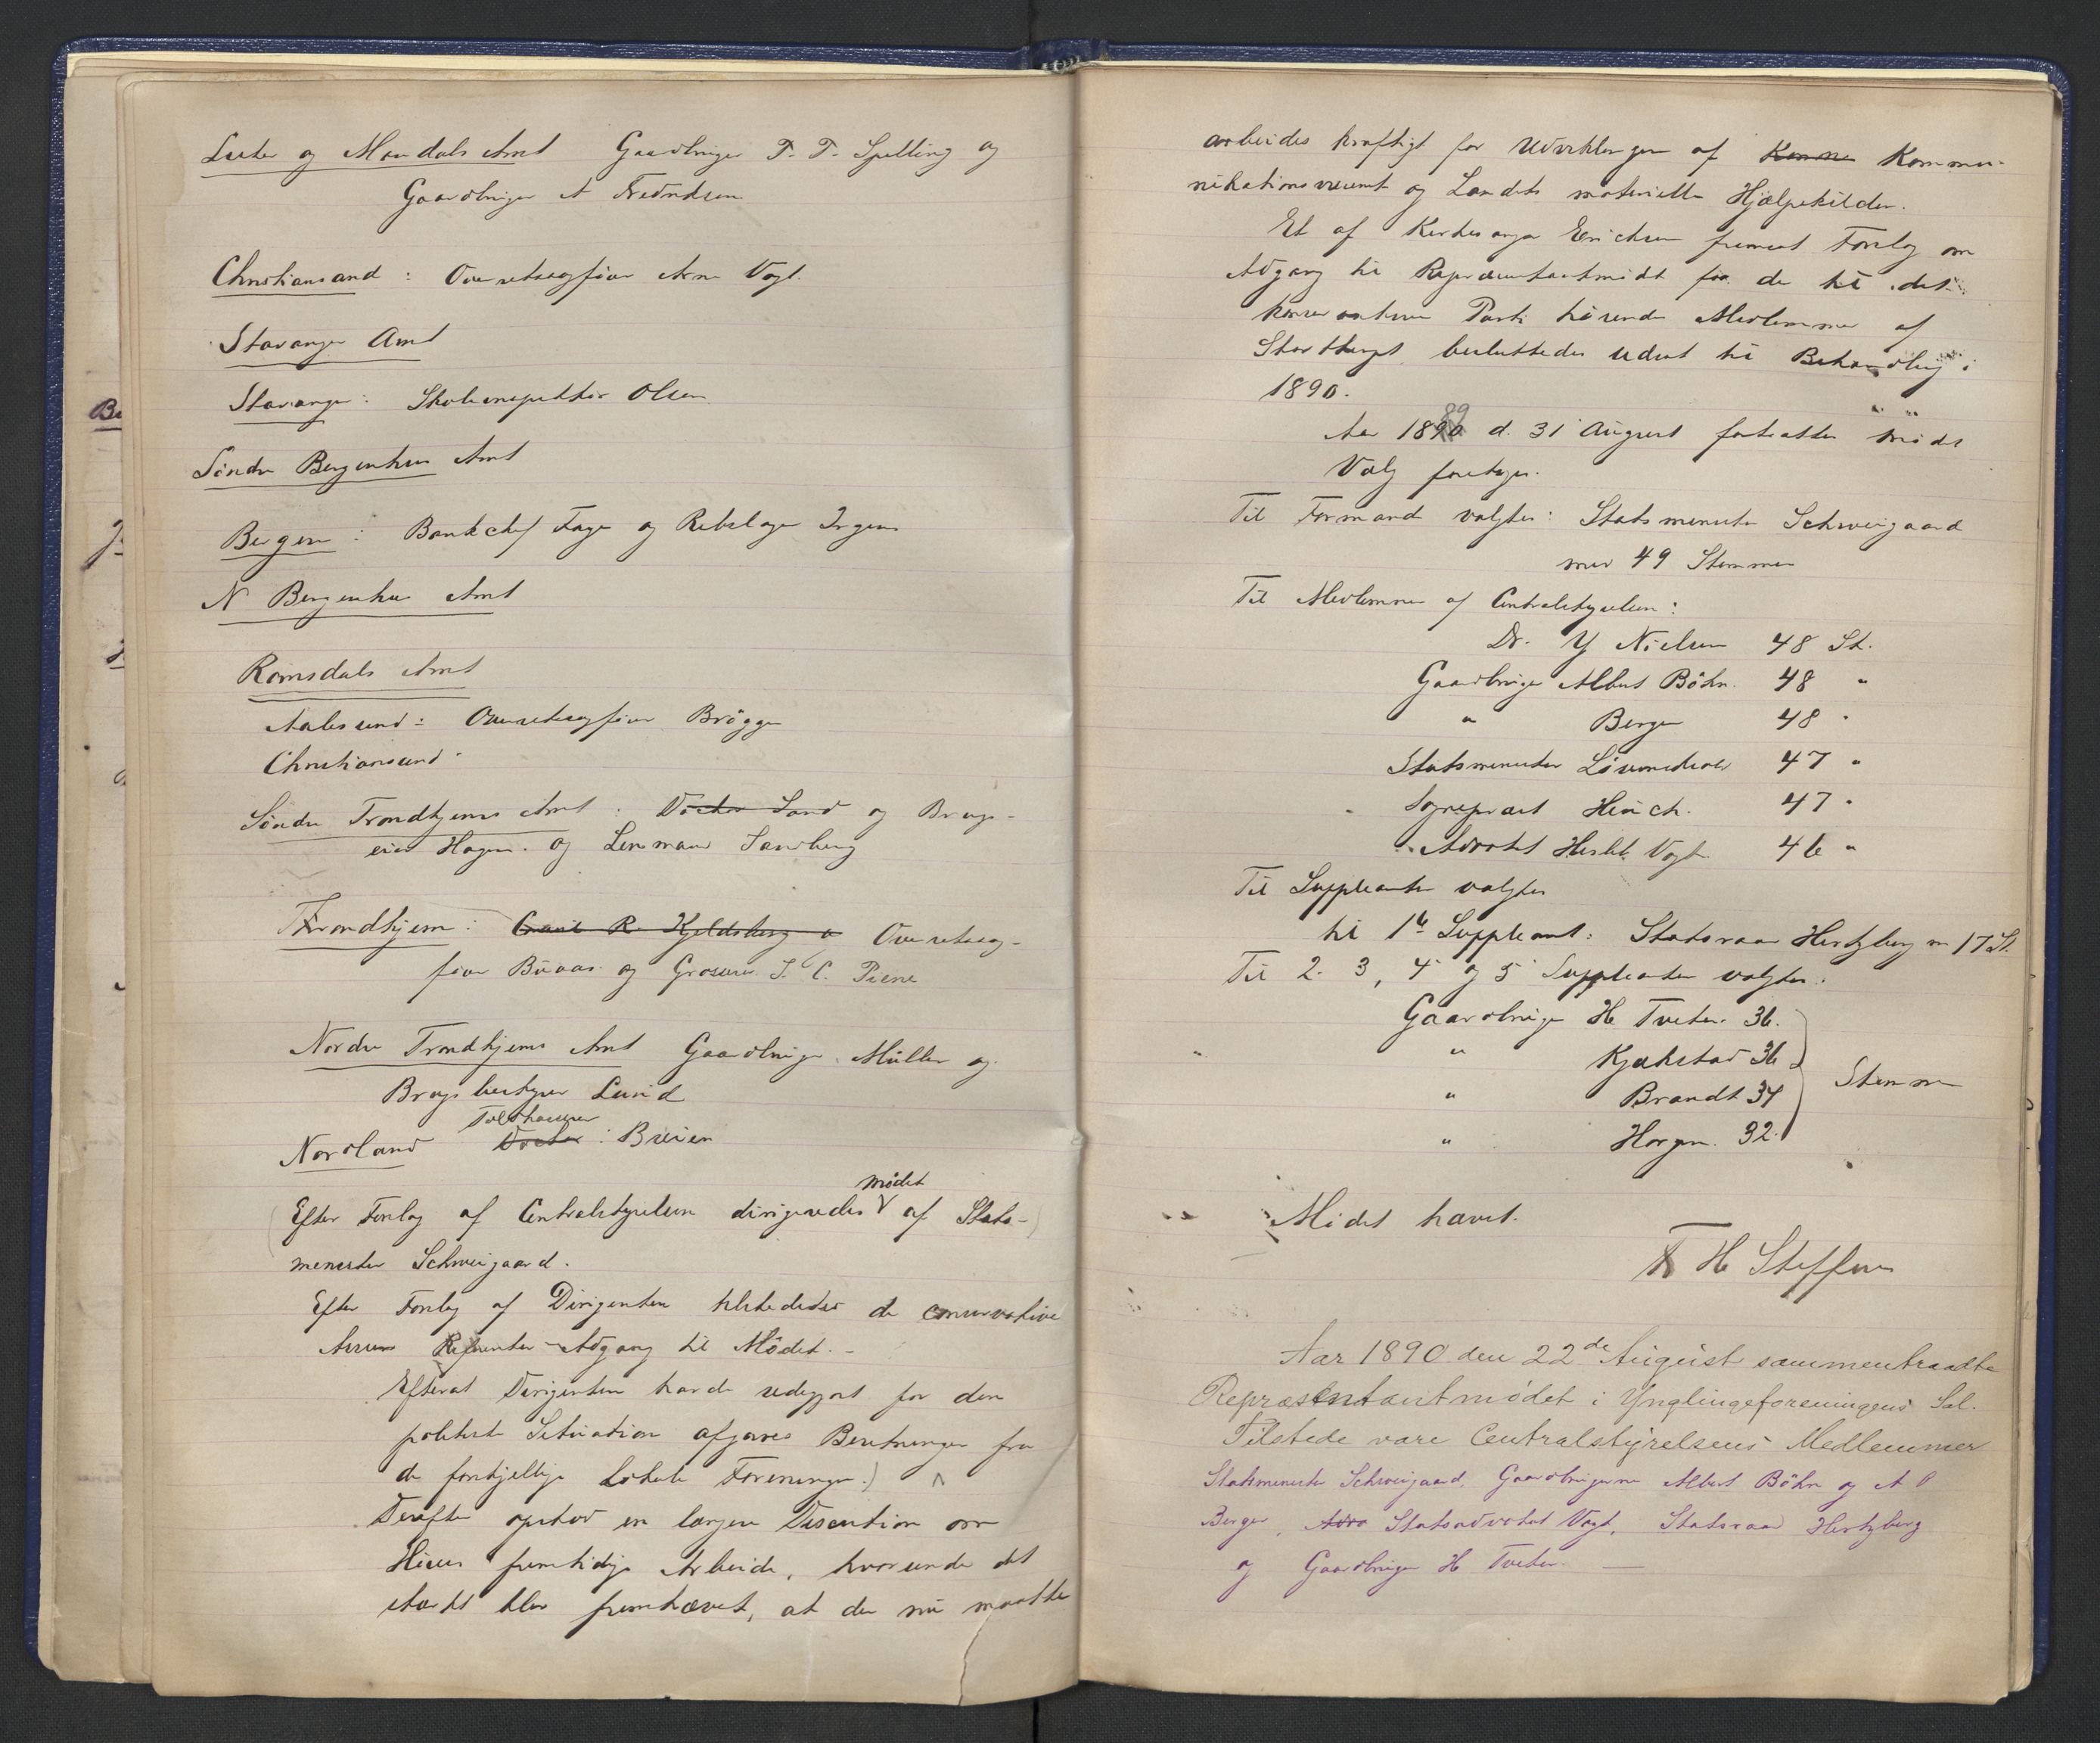 Lister og Mandals Amt Gaardbruger T. T. Spetting og
Gaardbruger A
Christiansand : Overretssagfører Arne Vogt.
Stavanger Amt
Stavanger : Skoleinspektør Olsen
Söndre Bergenhus Amt
Bergen : Bankchef Fage og Rebslager Irgens
N Bergenhus Amt
Romsdals Amt
Aalesund : Overretssagfører Brögger
Christiansund
Söndre Trondhjems Amt : Doctor Sand og Brugs-
eier Hagen. og Lensmand Sandberg
Trondhjem : R. Kjeldsberg o Overretssag-
fører Büvar og Grosserer I. C. Piene
Nordre Trondhjems Amt Gaardbruger Müller og
Brugsbestyrer Lund
Toldkasserer
Nordland Doctor : Breien
mødet
(Efter Forslag af Centralstyrelsen dirigeredes af Stats-
minister Schweigaard.
Efter Forslag af Dirigenten tilstededes de conservative
Avisers Referenter Adgang til Mödet. -
Efterat Dirigenten havde redegjort for den
politiske Situation afgaves Beretninger fra
de forskjellige Lokale Foreninger.)
Derefter opstod en længere Discution om
Höires fremtidige Arbeide, hvorunder det
stærkt blev fremhævet, at der nu maatte
arbeides kraftigt for Udviklingen af Kommu-
nikationsvæsenet og Landets materielle Hjælpekilder.
Et af Kirkesanger Erichsen fremsat Forslag om
Adgang til Repræsentantmödet for de til det
konservative Parti hörende Medlemmer af
Storthinget besluttedes udsat til Behandling i
1890.
Aar 1889 d. 31 August fortsattes mödet
Valg foretages.
Til Formand valgtes : Statsminister Schweigaard
med 49 Stemmer
Til Medlemmer af Centralstyrelsen :
Dr. Y Nielsen 48 St.
Gaardbruger Albert Böhn 48 "
" Berger 48 "
Statsminister Lövenskiold 47 "
Sognepræst Heuch. 47 "
Advokat Vogt 46 "
Til Suppleanter valgtes
til 1te Suppleant : Statsraad Hertzberg m 17 St.
Til 2. 3, 4 og 5 Suppleanter valgtes :
Gaardbruger H Tveter. 36.
" Kjækstad 36
" Brandt 34 Stemmer
" Horgen. 32.
Mödet hævet.
H Steffens
Aar 1890 den 22de August sammentraadte
Repræsentantmødet i Ynglingeforeningens Sal.
Tilstede vare Centralstyrelsens Medlemmer
Statsminister Schweigaard, Gaardbrugerne Albert Böhn og A P
Berger, Advo Statsadvokat Vogt, Statsraad Hertzberg
og Gaardbruger H Tveter. —